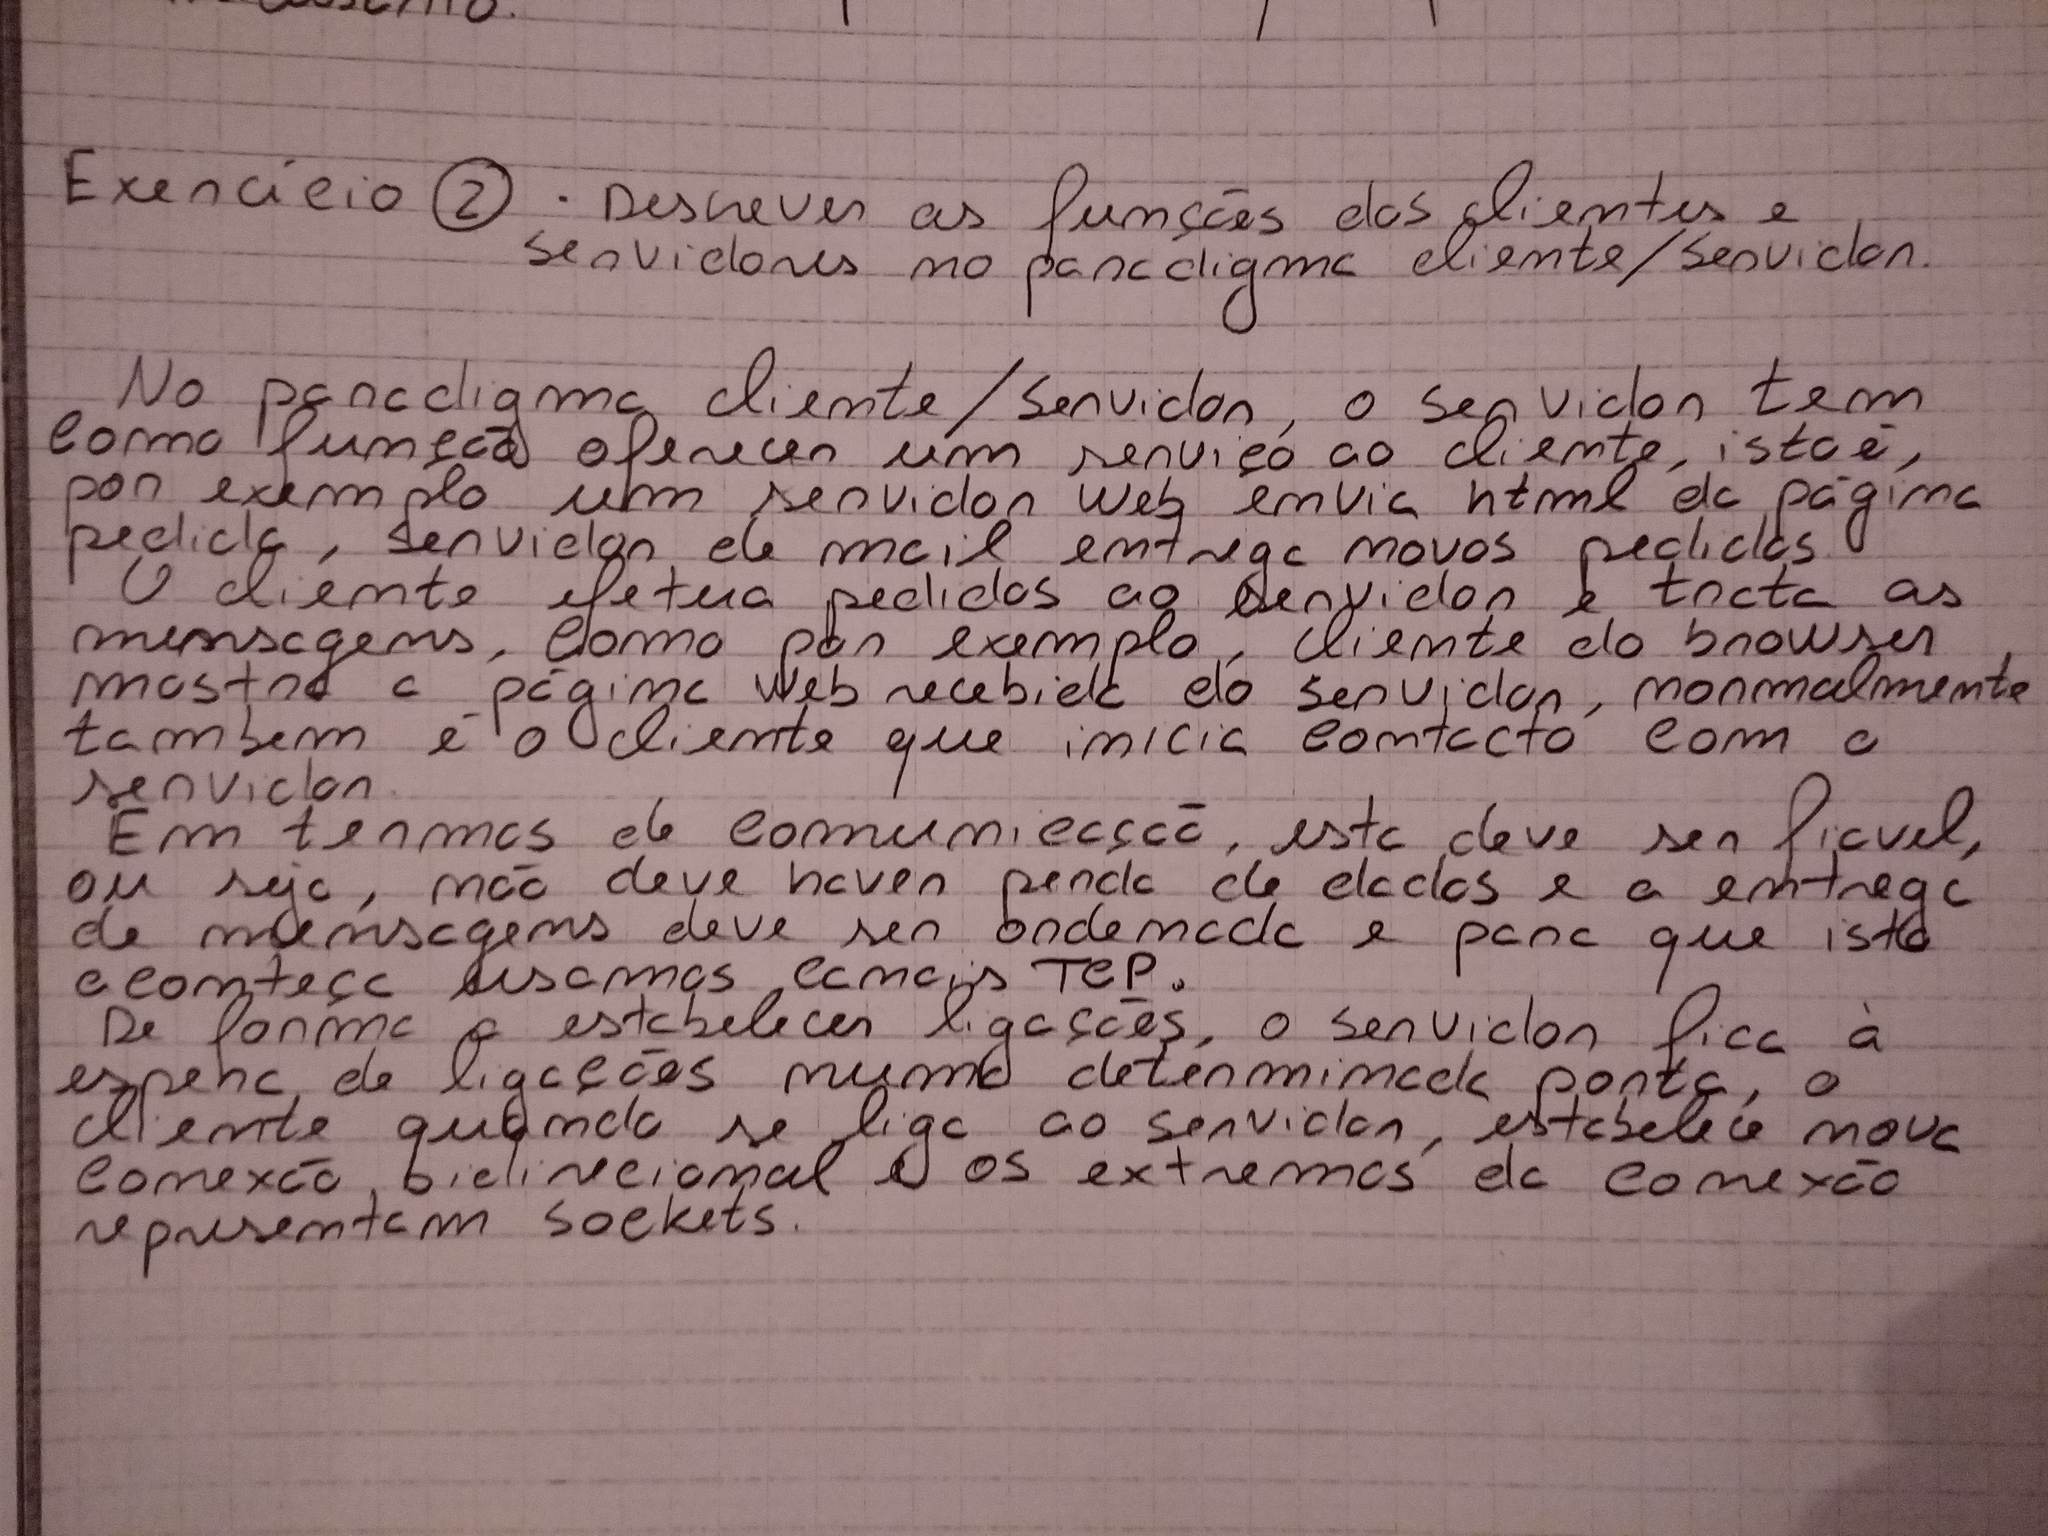 Exercício 2 . Descrever as funções dos clientes e
servidores no paradigma cliente/servidor.
No paradigma cliente/servidor, o servidor tem
como função oferecer um serviço ao cliente, isto é,
por exemplo um servidor web envia html da página
pedida, servidor de mail entrega novos pedidos
O cliente efetua pedidos ao servidor e trata as
mensagens, como por exemplo, cliente do browser
mostra a página web recebida do servidor, normalmente
tambem é o cliente que inicia contacto com o
servidor.
Em termos de comunicação, esta deve ser fiavel,
ou seja, não deve haver perda de dados e a entrega
de mensagens deve ser ordenada e para que isto
aconteça usamos canais TCP.
De forma a estabelecer ligações, o servidor fica à
espera de ligações numa determinada porta, o
cliente quando se liga ao servidor, estabelece nova
conexão bidirecional e os extremos da conexão
representam sockets.